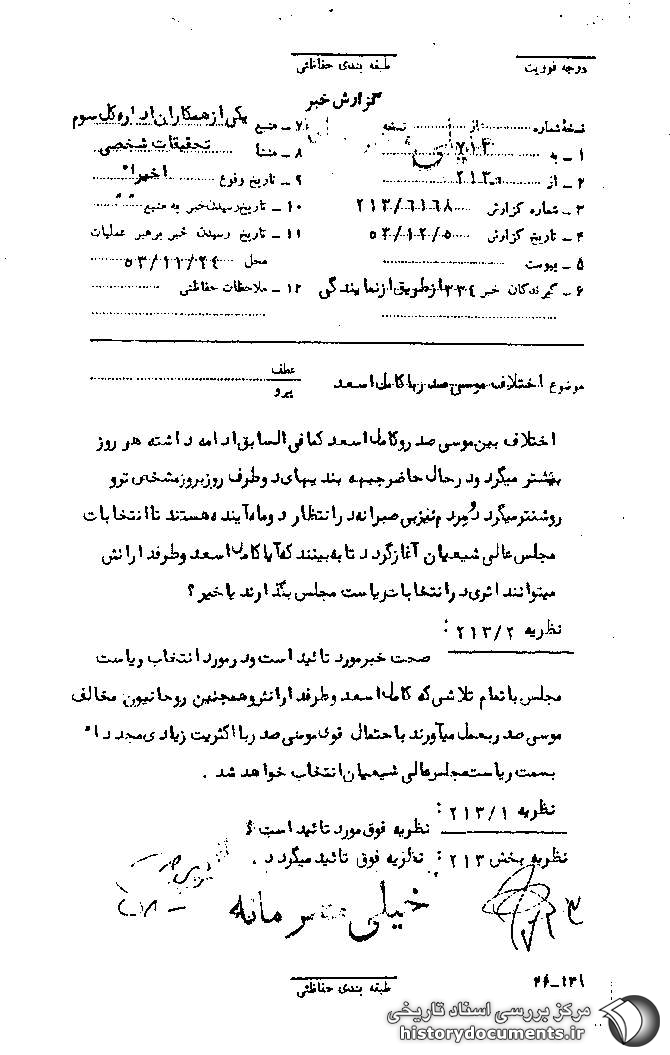 درجه فوریت
طبقه بندی حفاظتی
گزارش خبر
نسخه شماره از نسخه
۱ ـ به ۷۱۴
۲ ـ از ۲۱۳
۳ ـ شماره گزارش ۲۱۳/۶۱۶۸
۴ ـ تاریخ گزارش ۵۳/۱۲/۵
۵ ـ پیوست
۶ ـ گیرندگان خبر ۳۳۴ از طریق از نمایندگی
۷ ـ منبع یکی از همکاران اداره کل سوم
۸ ـ منشأ تحقیقات شخصی
۹ ـ تاریخ وقوع اخیرا"
۱۰ ـ تاریخ رسیدن خبر به منبع " "
۱۱ ـ تاریخ رسیدن خبر برهبر عملیات
محل ۵۳/۱۱/۲۴
۱۲ ـ ملاحظات حفاظتی
موضوع اختلاف موسی صدر با کامل اسعد
عطف
پیرو
اختلاف بین موسی صدر و کامل اسعد کمافی السابق ادامه داشته هر روز
بیشتر میگردد در حال حاضر جبهه بندیهای دو طرف روز بروز مشخص تر و
روشنتر میگردد و مردم نیز بی صبرانه در انتظار دو ماه آینده هستند تا انتخابات
مجلس عالی شیعیان آغاز گردد تا به بینند که آیا کامل اسعد و طرفدارانش
میتوانند اثری در انتخابات ریاست مجلس بگذارند یا خیر ؟
نظریه ۲۱۳/۲ :
صحت خبر مورد تائید است و در مورد انتخاب ریاست
مجلس با تمام تلاشی که کامل اسعد و طرفدارانش و همچنین روحانیون مخالف
موسی صدر بعمل میآورند با احتمال قوی موسی صدر با اکثریت زیادی مجددا"
بسمت ریاست مجلس عالی شیعیان انتخاب خواهد شد .
نظریه ۲۱۳/۱ :
نظریه فوق مورد تائید است
نظریه بخش ۲۱۳ : نظریه فوق تائید میگردد .
خیلی محرمانه
۲۶-۱۳۱
طبقه بندی حفاظتی
مرکز بررسی اسناد تاریخی
historydocuments.ir